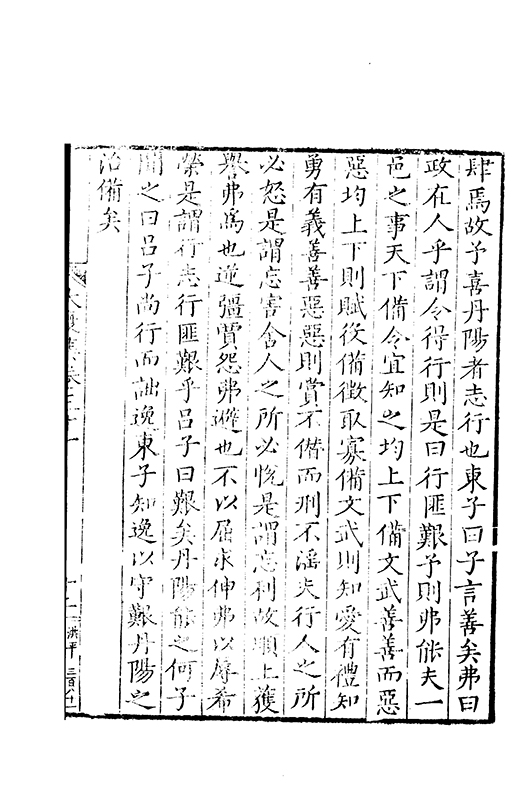 肆焉故予喜丹陽者志行也東子曰子言善矣弗曰
政在人乎謂令得行則是曰行匪艱予則弗能夫一
邑之事天下備令宜知之均上下備文武善善而惡
惡均上下則賦役備徵取寡備文武則知愛有禮知
勇有義善善惡惡則賞不僭而刑不滛夫行人之所
必怒是謂忘害舍人之所必恱是謂忘利故順上獲
舉弗為也逆彊賈怨弗避也不以屈求伸弗以辱希
榮是謂行志行匪艱乎吕子曰艱矣丹陽能之何子
聞之曰吕子尚行而詘逸東子知逸以守艱丹陽之
治備矣
大復集卷三十一
十一
洪平
三百八十一